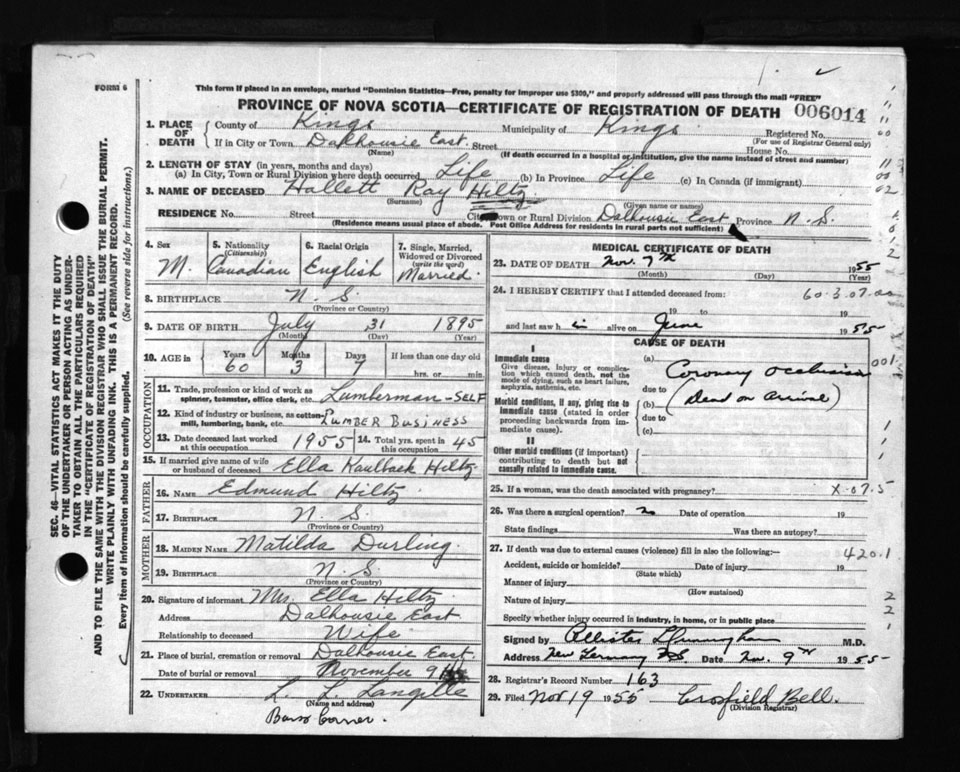 FORM 6
This form if placed in an envelope, marked "Dominion Statistics—Free, penalty for improper use $300," and properly addressed will pass through the mail "FREE"
PROVINCE OF NOVA SCOTIA—CERTIFICATE OF REGISTRATION OF DEATH 006014
1. PLACE OF DEATH { County of Kings Municipality of Kings Registered No.
(For use of Registrar General only)
If in City or Town Dalhousie East Street House No.
(Name) (If death occurred in a hospital or institution, give the name instead of street and number)
2. LENGTH OF STAY (in years, months and days)
(a) In City, Town or Rural Division where death occurred Life (b) In Province Life (c) In Canada (if immigrant)
3. NAME OF DECEASED Hallett Ray Hiltz
(Surname) (Given name or names)
RESIDENCE No. Street City, Town or Rural Division Dalhousie East Province N. S.
(Residence means usual place of abode. Post Office Address for residents in rural parts not sufficient)
4. Sex 5. Nationality (Citizenship) 6. Racial Origin 7. Single, Married, Widowed or Divorced (write the word)
M. Canadian English Married.
8. BIRTHPLACE N. S.
(Province or Country)
9. DATE OF BIRTH July 31 1895
(Month) (Day) (Year)
10. AGE in Years Months Days If less than one day old
60 3 7 hrs. or min.
OCCUPATION
11. Trade, profession or kind of work as spinner, teamster, office clerk, etc. Lumberman - SELF
12. Kind of industry or business, as cotton-mill, lumbering, bank, etc. LUMBER BUSINESS
13. Date deceased last worked at this occupation 1955 14. Total yrs. spent in this occupation 45
15. If married give name of wife or husband of deceased Ella Kaulback Hiltz
FATHER
16. NAME Edmund Hiltz
17. BIRTHPLACE N. S.
(Province or Country)
MOTHER
18. MAIDEN NAME Matilda Durling.
19. BIRTHPLACE N. S.
(Province or Country)
20. Signature of informant Mrs. Ella Hiltz
Address Dalhousie East
Relationship to deceased Wife
21. Place of burial, cremation or removal Dalhousie East.
Date of burial or removal November 9
22. UNDERTAKER L. L. Langille
(Name and address)
Barss Corner.
MEDICAL CERTIFICATE OF DEATH
23. DATE OF DEATH Nov. 7th 1955
(Month) (Day) (Year)
24. I HEREBY CERTIFY that I attended deceased from: 60-3-07.00
19 to 19
and last saw h i alive on June 1955
CAUSE OF DEATH
I
Immediate cause
Give disease, injury or complication which caused death, not the mode of dying, such as heart failure, asphyxia, asthenia, etc.
(a) Coronary occlusion 001
due to
Morbid conditions, if any, giving rise to immediate cause (stated in order proceeding backwards from immediate cause).
(b) (Dead on arrival)
due to
(c)
II
Other morbid conditions (if important) contributing to death but not causally related to immediate cause.
25. If a woman, was the death associated with pregnancy? X-07.5
26. Was there a surgical operation? no Date of operation 19
State findings Was there an autopsy?
27. If death was due to external causes (violence) fill in also the following:— 420.1
Accident, suicide or homicide? Date of injury 19
(State which)
Manner of injury
(How sustained)
Nature of injury
Specify whether injury occurred in industry, in home, or in public place
Signed by M.D.
Address New Germany N.S. Date Nov. 9th 1955
28. Registrar's Record Number 163
29. Filed Nov 19 1955 Crosfield Bell.
(Division Registrar)
SEC. 46—VITAL STATISTICS ACT MAKES IT THE DUTY
OF THE UNDERTAKER OR PERSON ACTING AS UNDER-
TAKER TO OBTAIN ALL THE PARTICULARS REQUIRED
IN THE "CERTIFICATE OF REGISTRATION OF DEATH"
AND TO FILE THE SAME WITH THE DIVISION REGISTRAR WHO SHALL ISSUE THE BURIAL PERMIT.
WRITE PLAINLY WITH UNFADING INK. THIS IS A PERMANENT RECORD.
Every item of information should be carefully supplied. (See reverse side for instructions.)